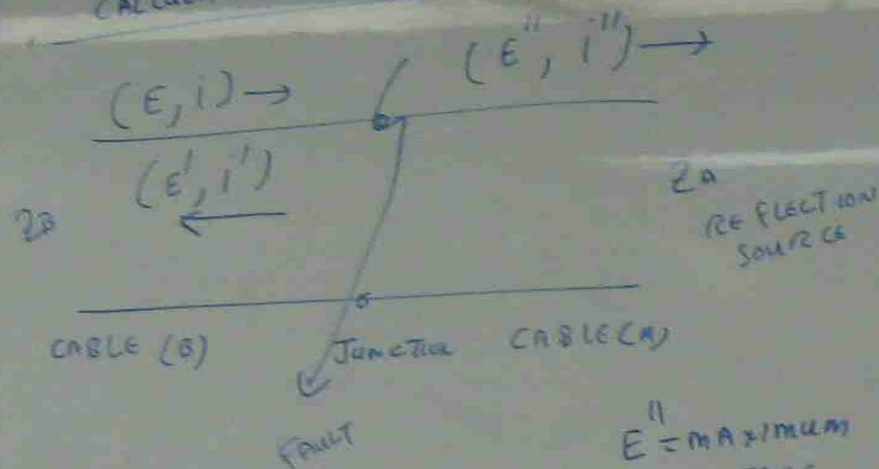 (E, i)→
(E'', i'')→
(E', i')
←
ZB
ZA
REFLECTION
SOURCE
CABLE (B)
JUNCTION
CABLE (A)
FAULT
E'' = MAXIMUM